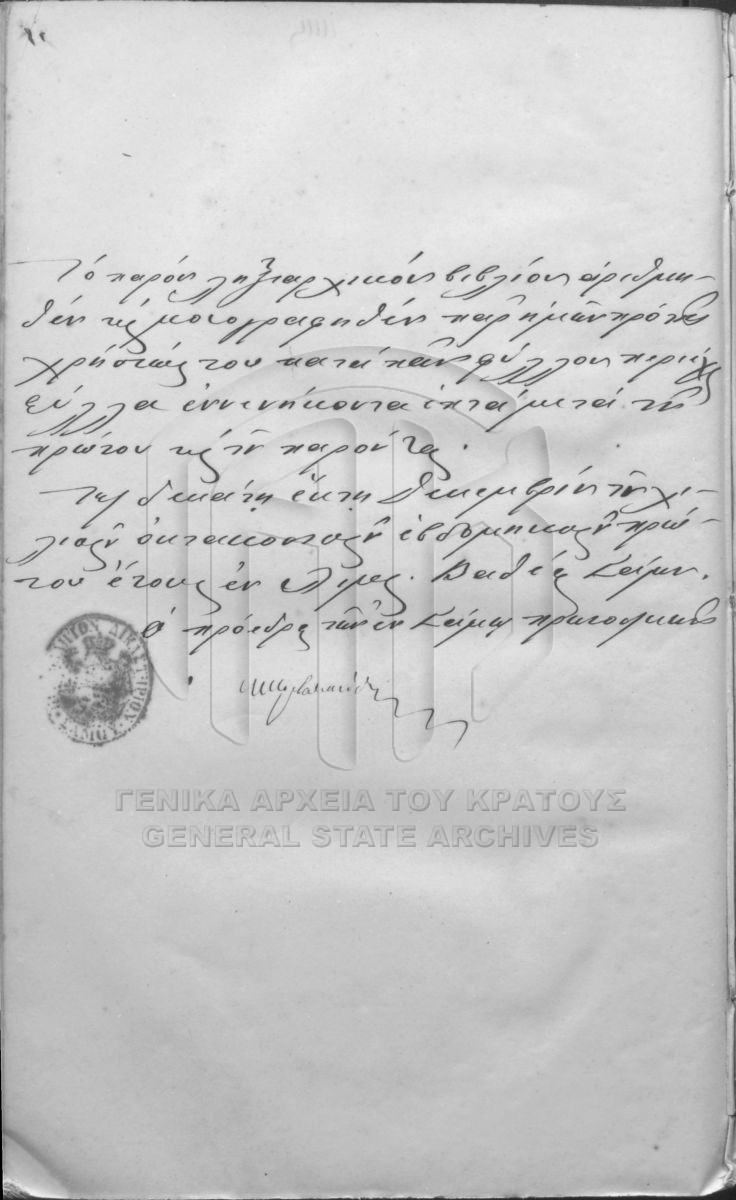 Τό παρόν ληξιαρχικόν βιβλίον ἀριθμη-
θέν καί μονογραφηθέν παρ' ἡμῶν πρό τῆς
χρήσεώς του κατά πᾶν φύλλον περιέχει
φύλλα ἐννενήκοντα ἑπτά μετά τοῦ
πρώτου καί τοῦ παρόντος.
Τῇ δεκάτῃ ἕκτῃ Δεκεμβρίου τοῦ χι-
λιοστοῦ ὀκτακοσιοστοῦ ἑβδομηκοστοῦ πρώ-
του ἔτους ἐν Λιμένι Βαθέος Σάμου.
Ὁ πρόεδρος τῶν ἐν Σάμῳ πρωτοδικῶν
ΣΑΜΟΥ
ΓΕΝΙΚΑ ΑΡΧΕΙΑ ΤΟΥ ΚΡΑΤΟΥΣ
GENERAL STATE ARCHIVES